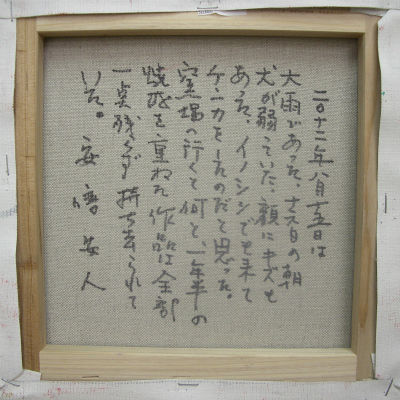 二〇十二年八月十五日は
大雨であった。十六日の朝
犬が弱っていた。顔にキズも
あった。イノシシでも来て
ケンカをしたのだと思った。
窯場へ行くと何と、一年半の
焼成を重ねた作品は全部
一点残らず持ち去られて
いた。 安倍安人